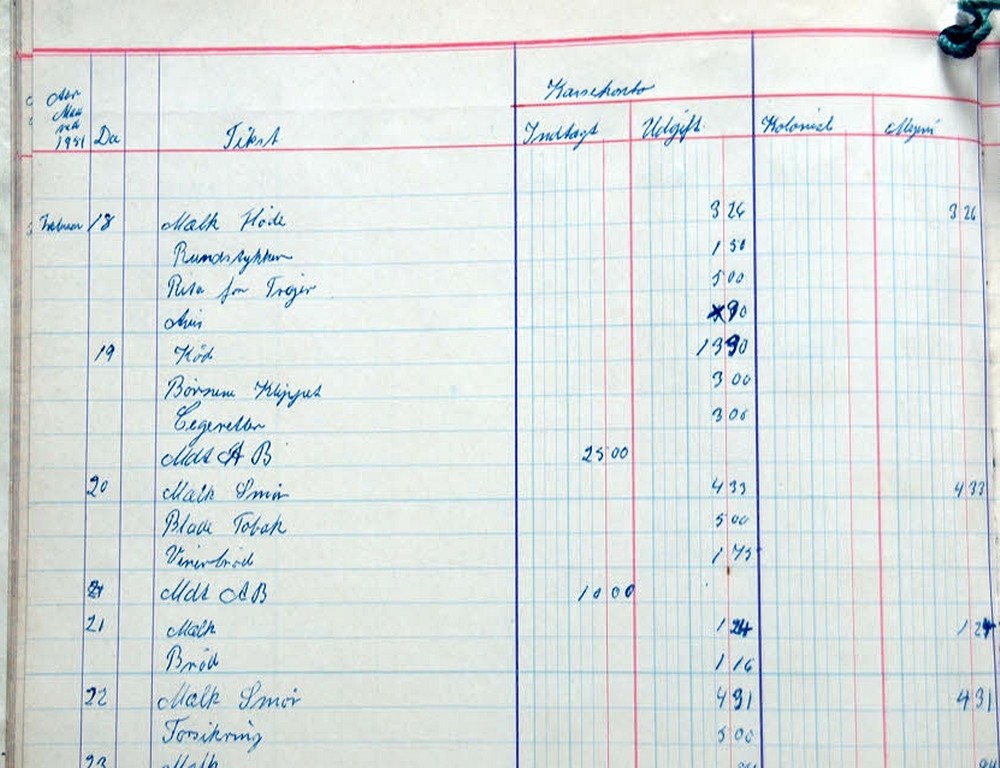 Aar
Maa
ned
1951 Da Tekst
Kassekonto
Indtægt Udgift Kolonial Mejeri
Februar 18 Mælk Fløde 3 26 3 26
Rundstykker 1 50
Rita for Trøjer 5 00
Avis 90
19 Kød 13 90
Børnene Klippet 3 00
Cegeretter 3 00
Mdt A B 25 00
20 Mælk Smør 4 33 4 33
Blade Tobak 5 00
Vinerbrød 1 75
21 Mdt A B 10 00
21 Mælk 1 24 1 24
Brød 1 16
22 Mælk Smør 4 31 4 31
Forsikring 5 00
23 Mælk